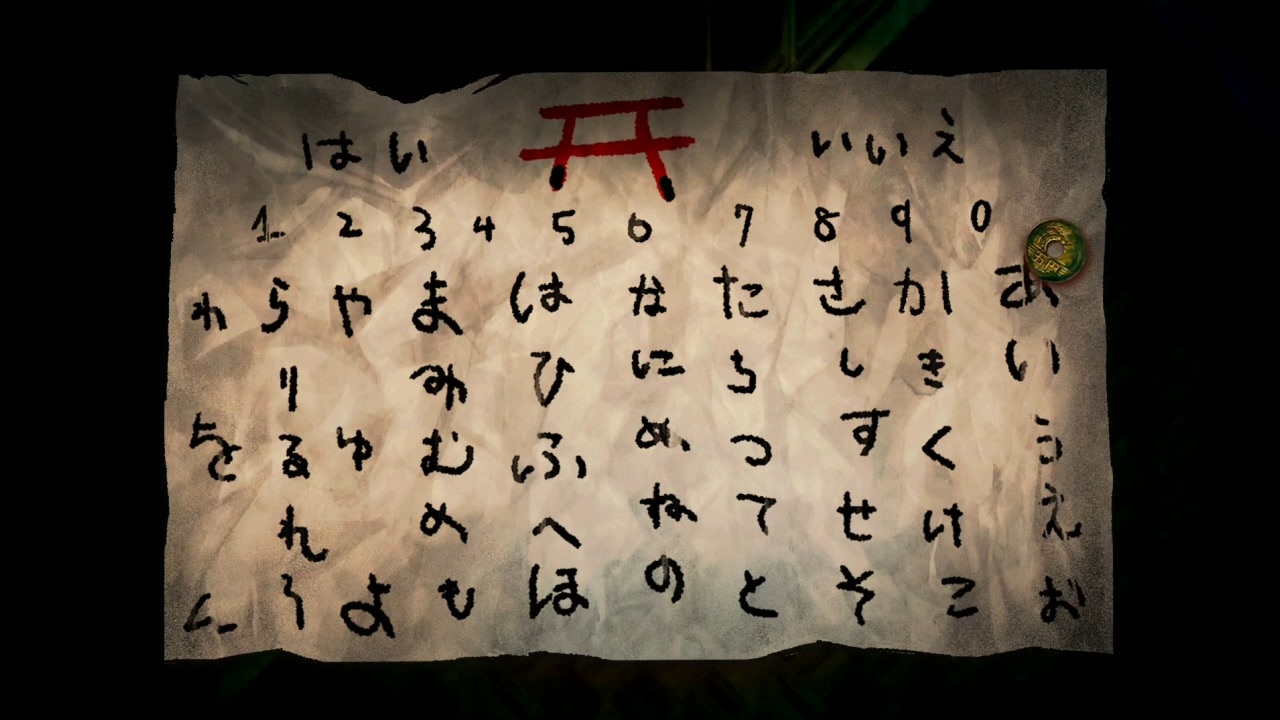 はい いいえ
1 2 3 4 5 6 7 8 9 0
あいうえお
かきくけこ
さしすせそ
たちつてと
なにぬねの
はひふへほ
まみむめも
やゆよ
らりるれろ
わをん